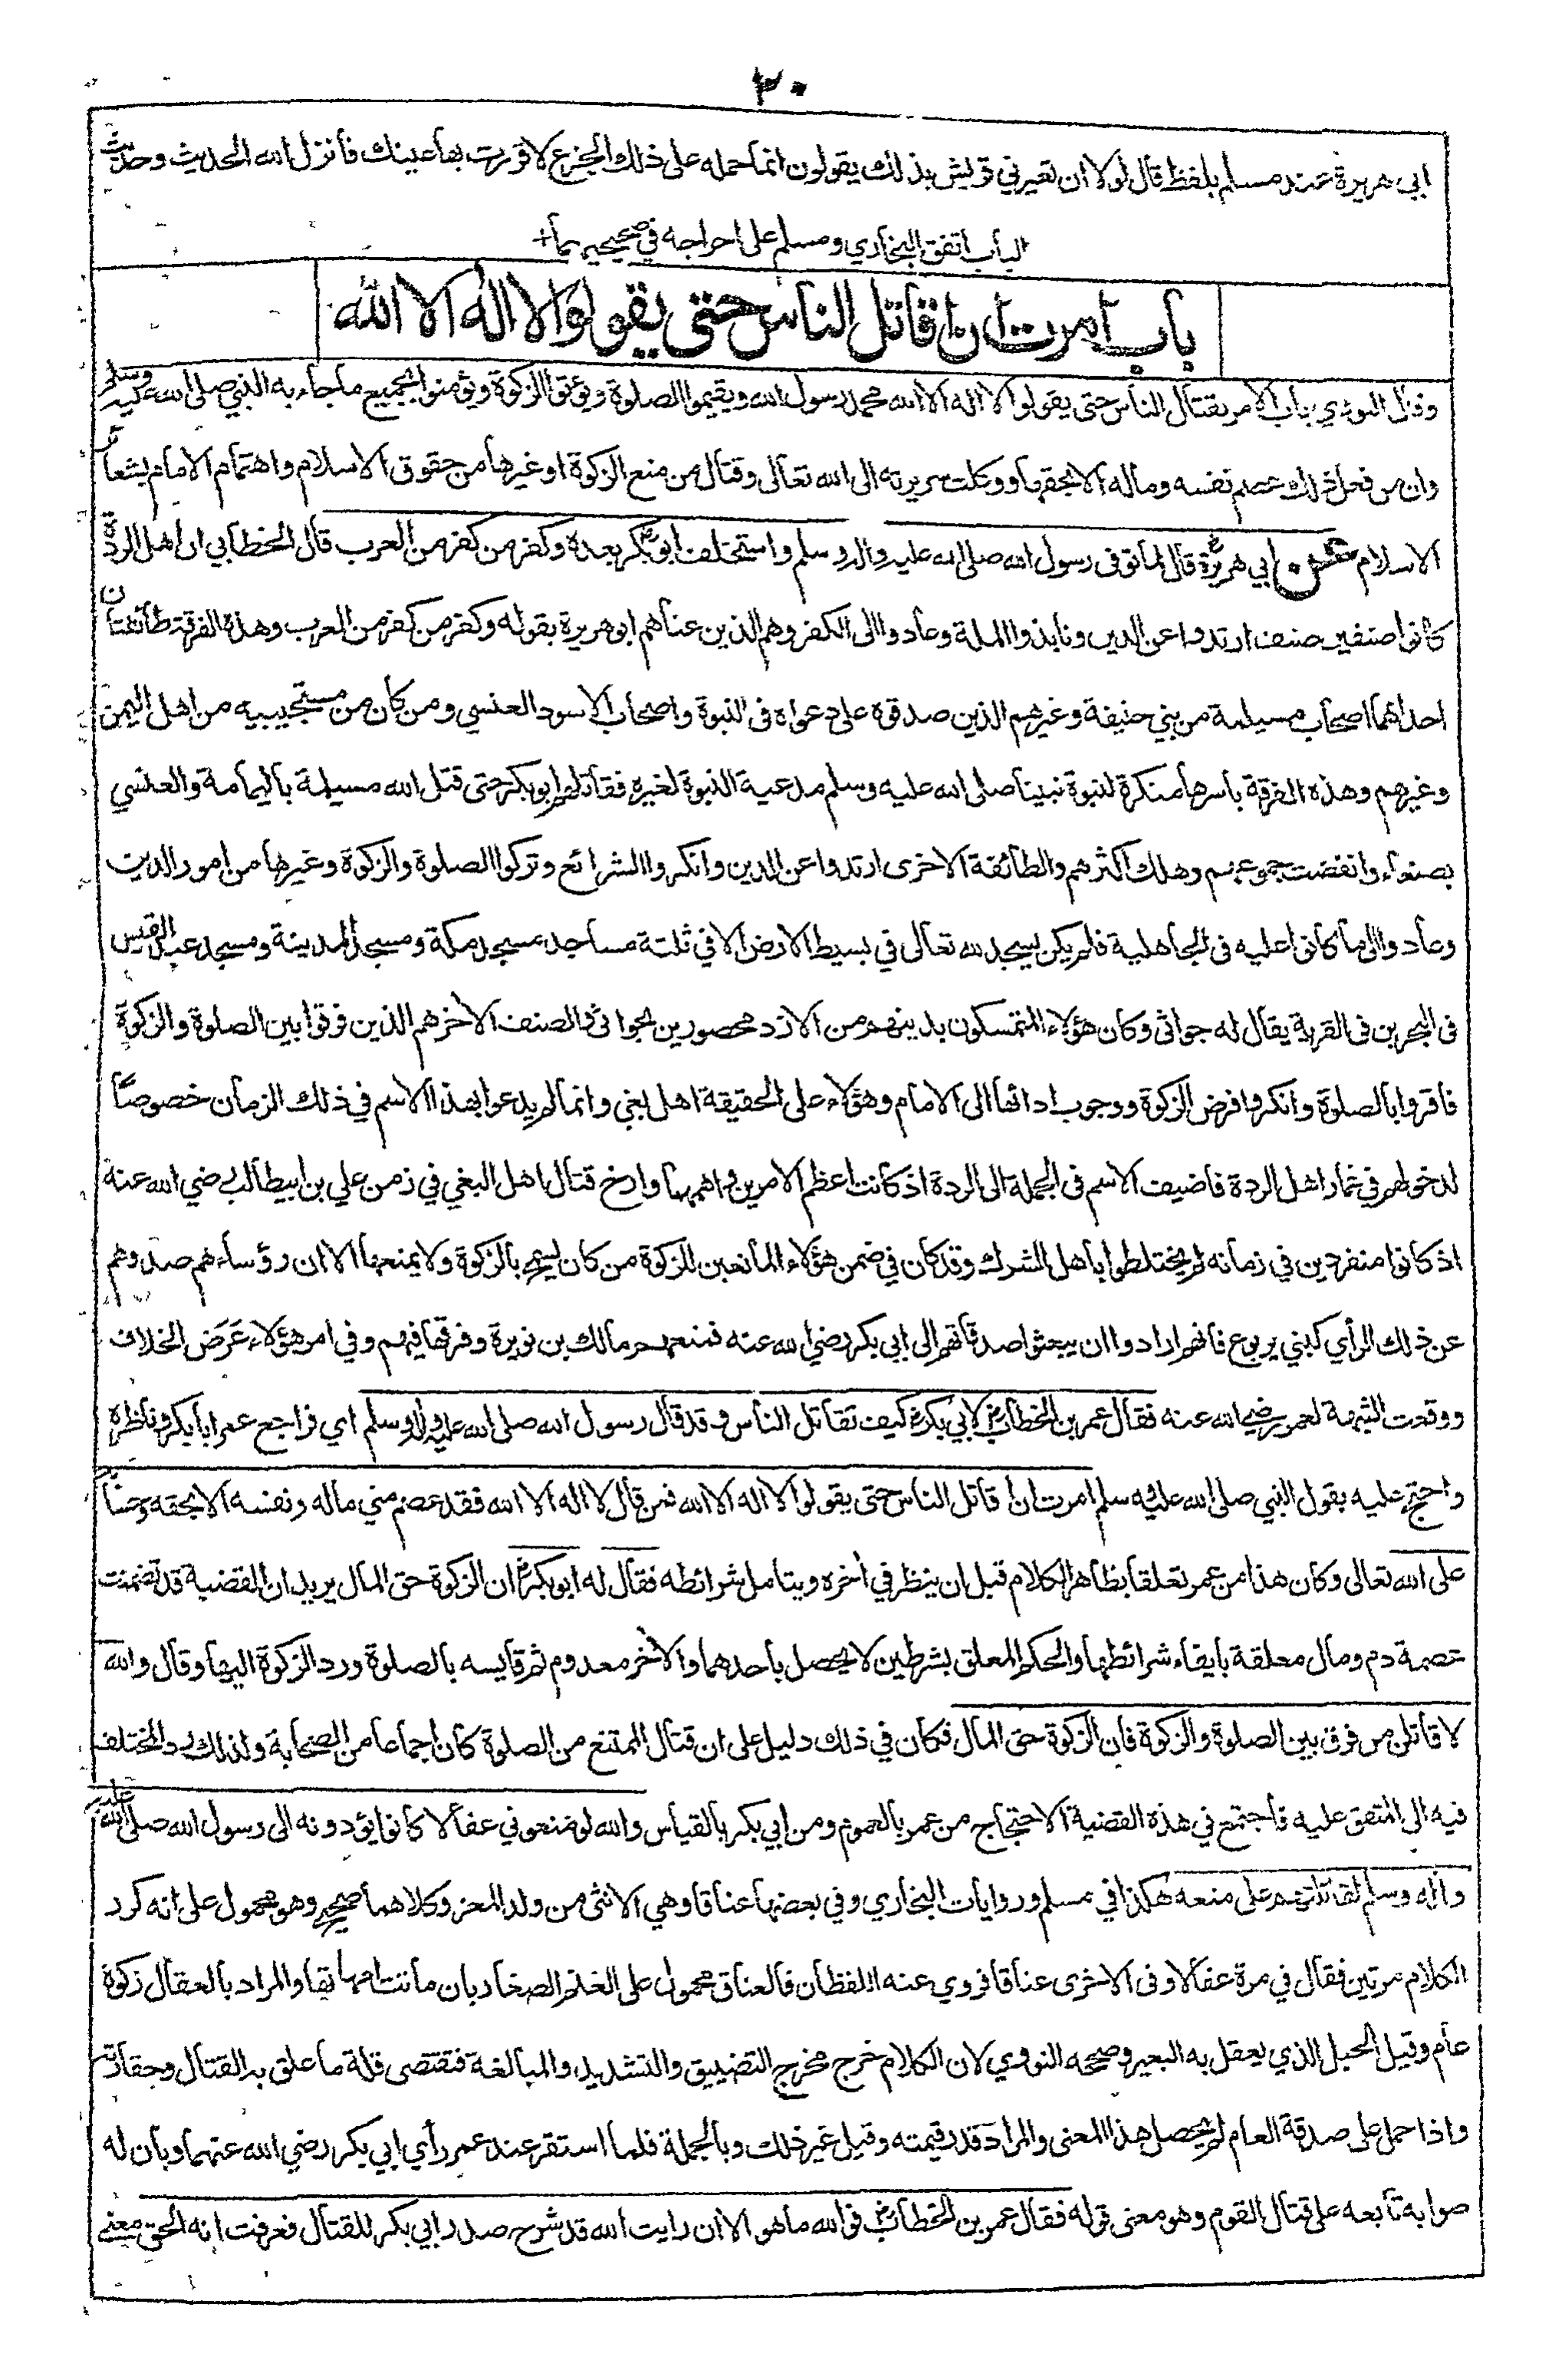 ٣٠
ابي هريرة عند مسلم بلفظ قال لولا ان تعيرني قريش بذلك يقولون انما حمله على ذلك الجزع لاقررت بها عينك فانزل الله الحديث وحديث
الباب اتفق البخاري ومسلم على اخراجه في صحيحيهما
باب امرت ان اقاتل الناس حتى يقولوا لا اله الا الله
وقال النووي باب الامر بقتال الناس حتى يقولوا لا اله الا الله محمد رسول الله ويقيموا الصلوة ويؤتوا الزكوة ويؤمنوا بجميع ما جاء به النبي صلى الله عليه وسلم
وان من فعل ذلك عصم نفسه وماله الا بحقها ووكلت سريرته الى الله تعالى وقتال من منع الزكوة او غيرها من حقوق الاسلام واهتمام الامام بشعائر
الاسلام عن ابي هريرة قال لما توفى رسول الله صلى الله عليه واله وسلم واستخلف ابو بكر بعده وكفر من كفر من العرب قال الخطابي ان اهل الردة
كانوا صنفين صنف ارتدوا عن الدين ونابذوا الملة وعادوا الى الكفر وهم الذين عناهم ابو هريرة بقوله وكفر من كفر من العرب وهذه الفرقة طائفتان
احداهما اصحاب مسيلمة من بني حنيفة وغيرهم الذين صدقوه على دعواه فى النبوة واصحاب الاسود العنسي ومن كان من مستجيبيه من اهل اليمن
وغيرهم وهذه الفرقة باسرها منكرة لنبوة نبينا صلى الله عليه وسلم مدعية النبوة لغيره فقاتلهم ابو بكر حتى قتل الله مسيلمة باليمامة والعنسي
بصنعاء وانفضت جموعهم وهلك اكثرهم والطائفة الاخرى ارتدوا عن الدين وانكروا الشرائع وتركوا الصلوة والزكوة وغيرها من امور الدين
وعادوا الى ما كانوا عليه فى الجاهلية فلم يكن يسجد لله تعالى في بسيط الارض الا في ثلثة مساجد مسجد مكة ومسجد المدينة ومسجد عبد القيس
فى البحرين فى القرية يقال له جواثى وكان هؤلاء المتمسكون بدينهم من الازد محصورين بجواثى والصنف الاخر هم الذين فرقوا بين الصلوة والزكوة
فاقروا بالصلوة وانكروا فرض الزكوة ووجوب ادائها الى الامام وهؤلاء على الحقيقة اهل بغي وانما لم يدعوا بهذا الاسم في ذلك الزمان خصوصاً
لدخولهم في غمار اهل الردة فاضيف الاسم فى الجملة الى الردة اذ كانت اعظم الامرين واهمهما وارخ قتال اهل البغي في زمن علي بن ابيطالب رضي الله عنه
اذ كانوا منفردين في زمانه لم يختلطوا باهل الشرك وقد كان في ضمن هؤلاء المانعين للزكوة من كان يسمح بالزكوة ولا يمنعها الا ان رؤساءهم صدوهم
عن ذلك الرأي كبني يربوع فانهم ارادوا ان يبعثوا صدقاتهم الى ابي بكر رضي الله عنه فمنعهم مالك بن نويرة وفرقها فيهم وفي امر هؤلاء عَرَض الخلاف
ووقعت الشبهة لعمر رضي الله عنه فقال عمر بن الخطاب لابي بكر كيف تقاتل الناس وقد قال رسول الله صلى الله عليه واله وسلم اي فراجع عمر ابا بكر وناظره
واحتج عليه بقول النبي صلى الله عليه وسلم امرت ان اقاتل الناس حتى يقولوا لا اله الا الله فمن قال لا اله الا الله فقد عصم مني ماله ونفسه الا بحقه وحسابه
على الله تعالى وكان هذا من عمر تعلقا بظاهر الكلام قبل ان ينظر في اخره ويتامل شرائطه فقال له ابو بكر ان الزكوة حق المال يريد ان القضية قد تضمنت
عصمة دم ومال معلقة بايفاء شرائطها والحكم المعلق بشرطين لا يحصل باحدهما والاخر معدوم ثم قايسه بالصلوة ورد الزكوة اليها وقال والله
لاقاتلن من فرق بين الصلوة والزكوة فان الزكوة حق المال فكان في ذلك دليل على ان قتال الممتنع من الصلوة كان اجماعا من الصحابة ولذلك رد المختلف
فيه الى المتفق عليه فاجتمع في هذه القضية الاحتجاج من عمر بالعموم ومن ابي بكر بالقياس والله لو منعوني عقالا كانوا يؤدونه الى رسول الله صلى الله عليه
واله وسلم لقاتلتهم على منعه هكذا في مسلم وروايات البخاري وفي بعضها عناقا وهي الانثى من ولد المعز وكلاهما صحيح وهو محمول على انه كرر
الكلام مرتين فقال في مرة عقالا وفى الاخرى عناقا فروي عنه اللفظان فالعناق محمول على الغنم الصغار بان ماتت امهاتها والمراد بالعقال زكوة
عام وقيل الحبل الذي يعقل به البعير وصححه النووي لان الكلام خرج مخرج التضييق والتشديد والمبالغة فتقتضى قلة ما علق به القتال وحقارته
واذا حمل على صدقة العام لم يحصل هذا المعنى والمراد قدر قيمته وقيل غير ذلك وبالجملة فلما استقر عند عمر رأي ابي بكر رضي الله عنهما وبان له
صوابه تابعه على قتال القوم وهو معنى قوله فقال عمر بن الخطاب فوالله ما هو الا ان رايت الله قد شرح صدر ابي بكر للقتال فعرفت انه الحق معنى